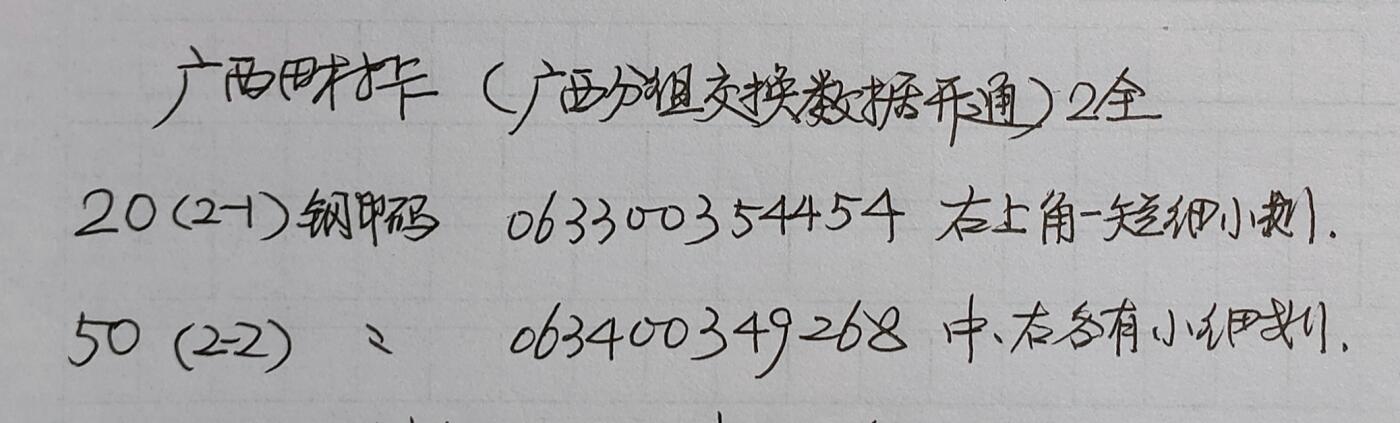 广西田村卡（广西分组交换数据开通）2全
20(2-1)钢印码 063300354454 右上角一短细小划.
50 (2-2) 〃 063400349268 中、右各有小细划.